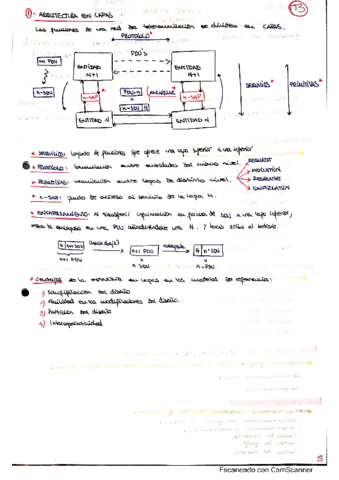 T3
① - ARQUITECTURA EN CAPAS.
Las funciones de una red de telecomunicación se dividen en CAPAS.
PROTOCOLO*
PDU's
n+1 PDU
ENTIDAD N+1
ENTIDAD N+1
SERVICIOS*
PRIMITIVAS*
n-SDU
n-SAP
PDU-n
n-SAP
n-SDU H
ENTIDAD N
ENTIDAD N
* SERVICIOS: conjunto de funciones que ofrece una capa superior a una inferior
* PROTOCOLO: comunicación entre entidades del mismo nivel.
* PRIMITIVAS: comunicación entre capas de distinto nivel.
REQUEST
INDICATION
RESPONSE
CONFIRMATION
* n-SAP: punto de acceso al servicio de la capa n.
* ENCAPSULAMIENTO: Al transferir información en forma de SDU a una capa inferior,
esta la encapsula en una PDU añadiéndole una H. Y hacia arriba al contrario.
(hacia abajo)
n+1 PDU
encapsula
H n-SDU
n+1 PDU
n SDU
n-PDU
* Ventajas de la estructura en capas en los modelos de referencia:
1) Simplificación del diseño
2) Facilidad en las modificaciones del diseño.
3) Partición del diseño
4) Interoperatividad
5
Escaneado con CamScanner